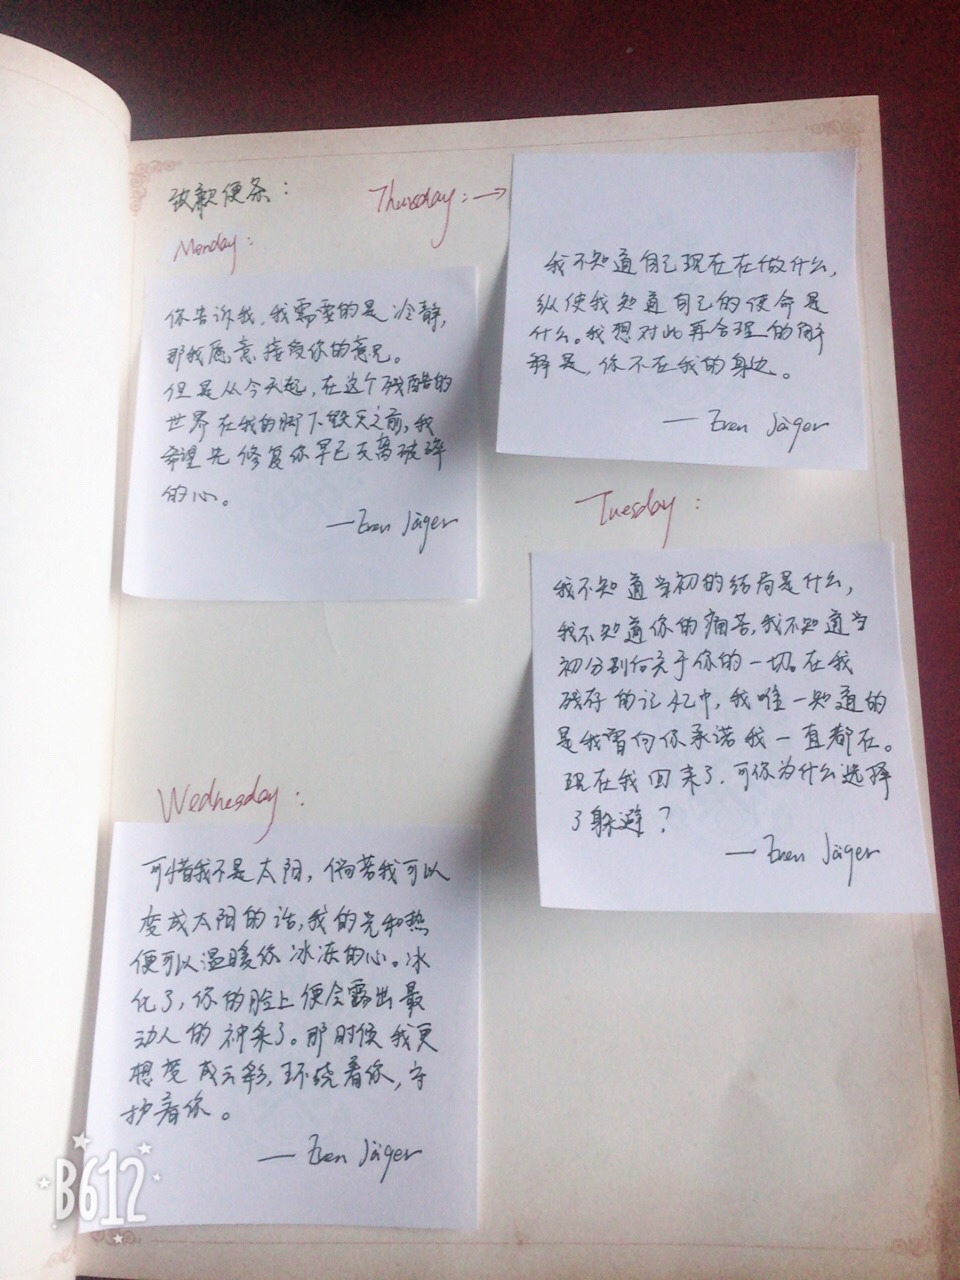 致歉便条：
Monday:
你告诉我，我需要的是冷静，
那我愿意接受你的意见。
但是从今天起，在这个残酷的
世界在我的脚下毁灭之前，我
希望先修复你早已支离破碎
的心。
—Eren Jäger
Thursday: →
我不知道自己现在在做什么，
纵使我知道自己的使命是
什么。我想对此再合理的解
释是，你不在我的身边。
—Eren Jäger
Tuesday:
我不知道当初的结局是什么，
我不知道你的痛苦，我不知道当
初分别后关于你的一切。在我
残存的记忆中，我唯一知道的
是我曾向你承诺我一直都在。
现在我回来了，可你为什么选择
了躲避？
—Eren Jäger
Wednesday:
可惜我不是太阳，倘若我可以
变成太阳的话，我的光和热
便可以温暖你冰冻的心。冰
化了，你的脸上便会露出最
动人的神采了。那时候我更
想变成云彩，环绕着你，守
护着你。
—Eren Jäger
B612